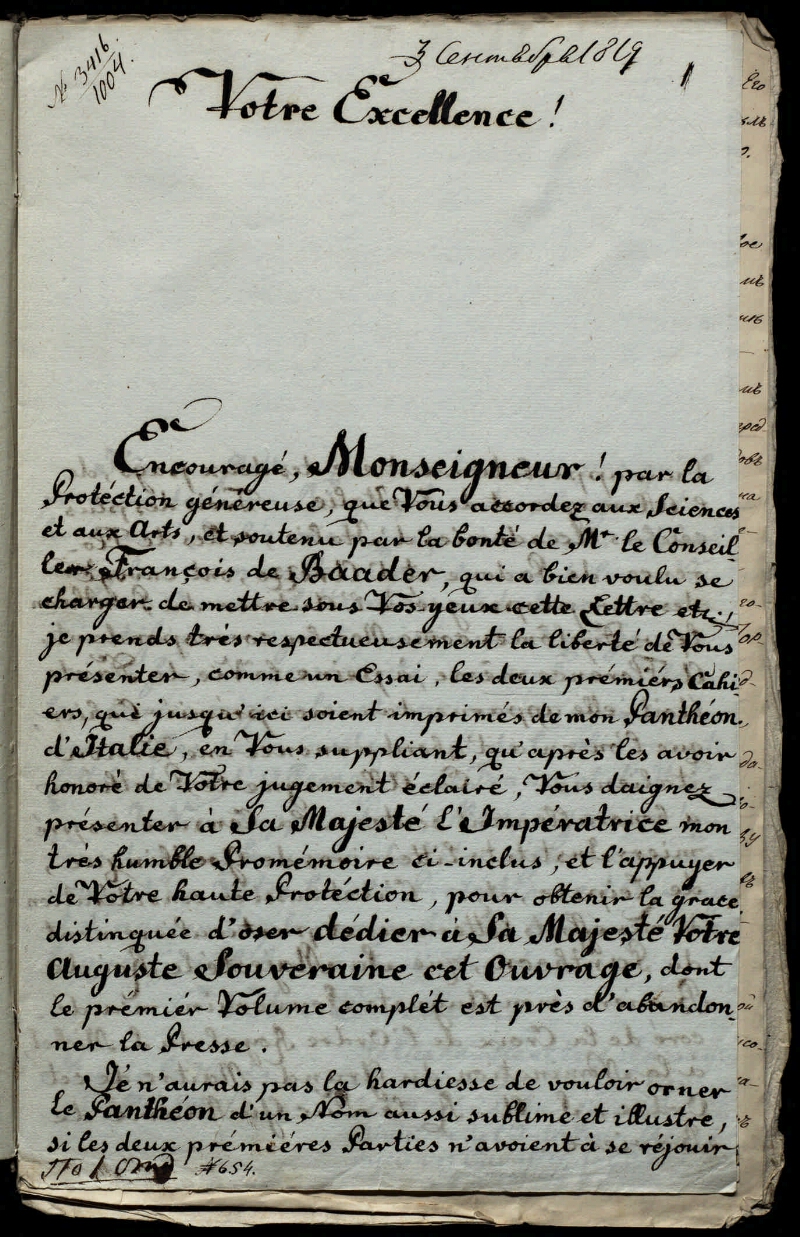 № 3416.
1004.
3 Сентября 1819
1
Votre Excellence!
Encouragé, Monseigneur! par la
Protéction généreuse, que Vous accordez aux Sciences
et aux Arts, et soutenu par la bonté de Mr. le Conseil-
ler François de Baader, qui a bien voulu se
charger de mettre sous Vos yeux cette Lettre etc:
je prends très respectueusement la liberté de Vous
présenter, comme un Essai, les deux prémiérs Cahi-
ers, qui jusqu'ici soient imprimés de mon Panthéon
d'Italie, en Vous suppliant, qu'après les avoir
honoré de Votre jugement éclairé, Vous daignez
présenter à Sa Majesté l'Impératrice mon
très humble Promémoire ci-inclus, et l'appuyer
de Votre haute Protéction, pour obtenir la grace
distinquée d'oser dédier à Sa Majesté Votre
Auguste Souveraine cet Ouvrage, dont
le prémiér Volume complét est près d'abandon-
ner la Presse.
Je n'aurais pas la hardiesse de vouloir orner
le Panthéon d'un Nom aussi sublime et illustre,
si les deux prémiéres Parties n'avoient à se réjouir
#654.